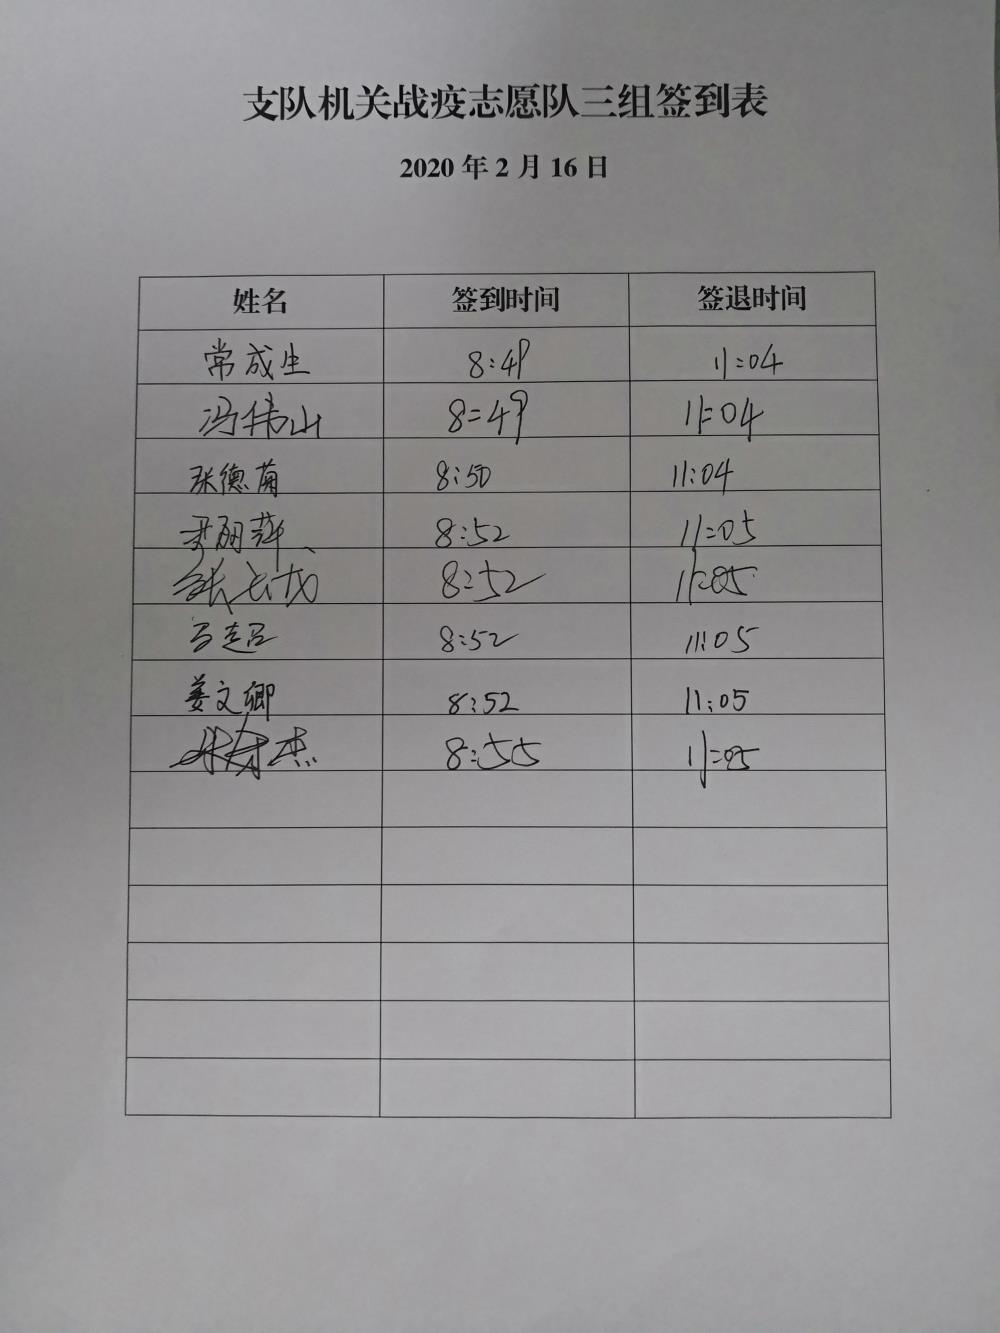 支队机关战疫志愿队三组签到表
2020年2月16日
姓名 签到时间 签退时间
常成生 8:49 11:04
冯伟山 8:49 11:04
张德菊 8:50 11:04
8:52 11:05
张长龙 8:52 11:05
马超 8:52 11:05
姜文卿 8:52 11:05
杰 8:55 11:05